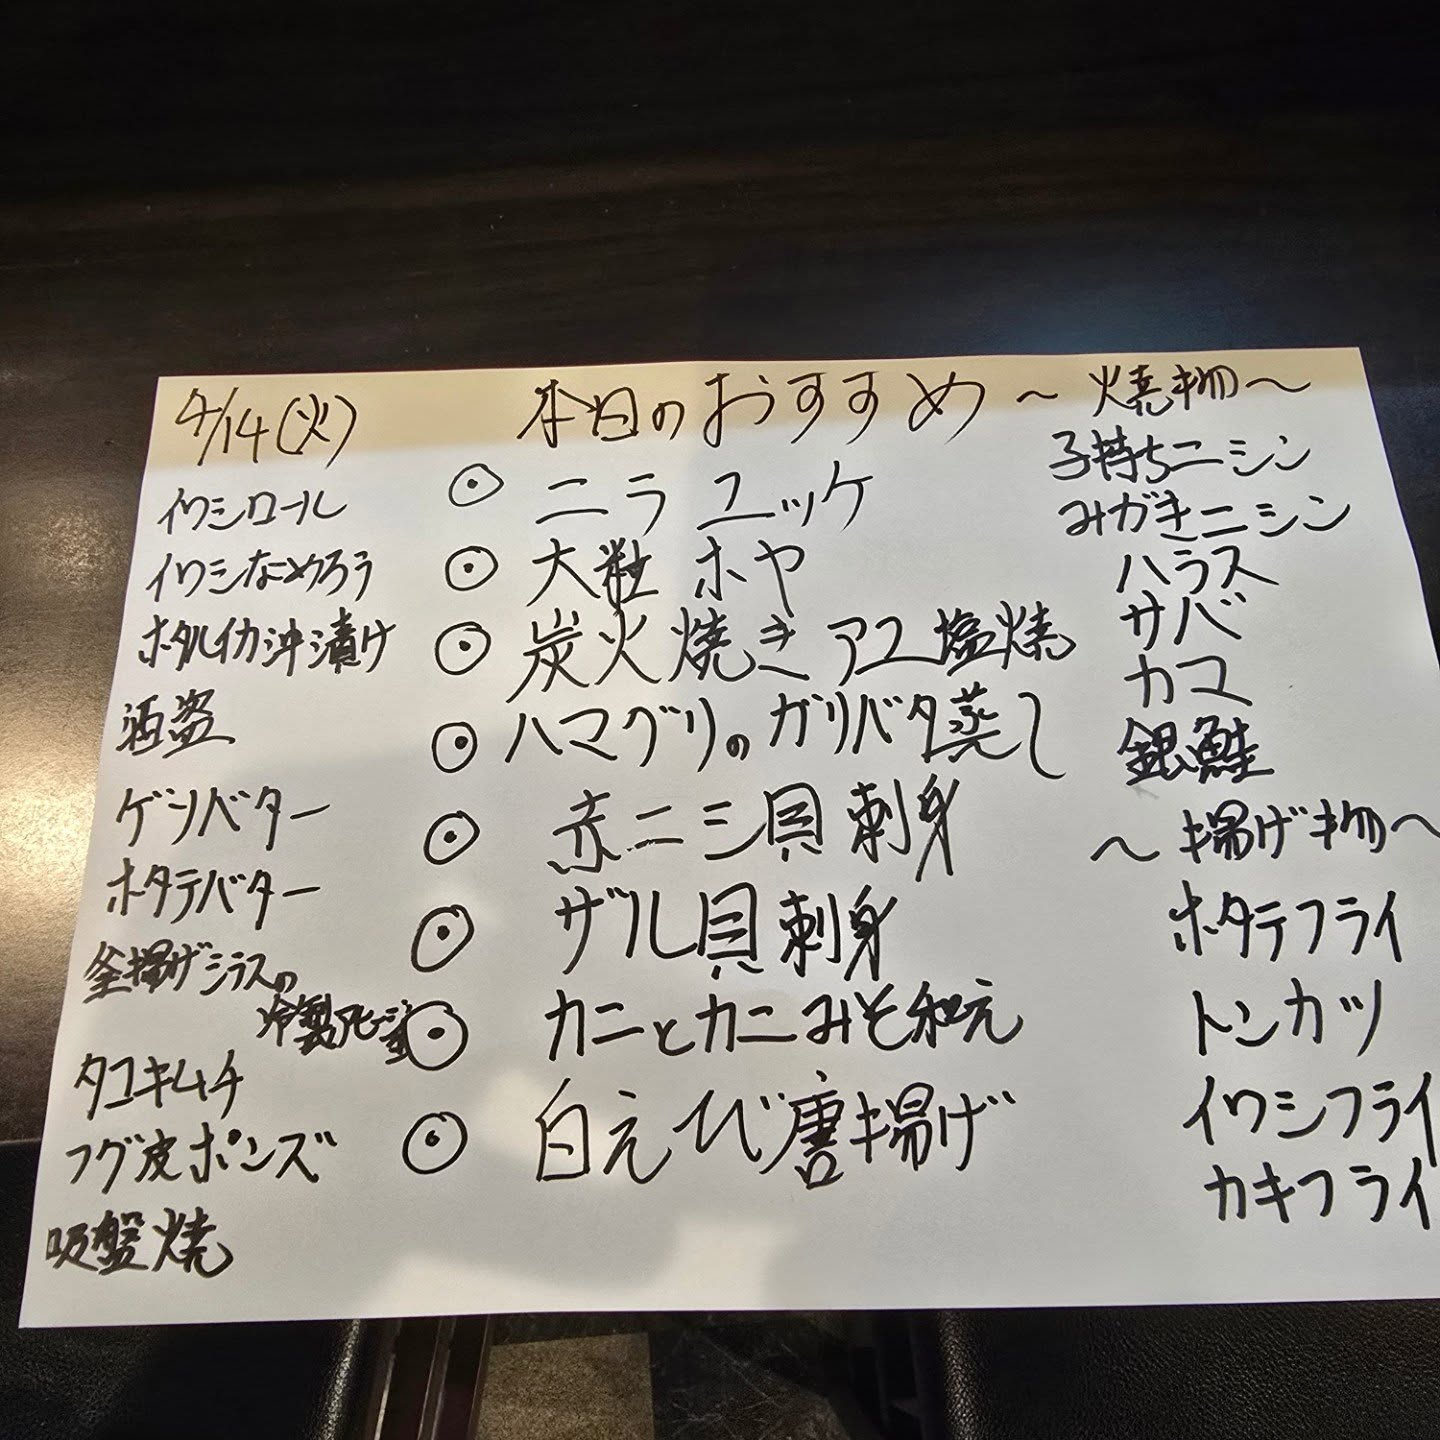 4/14(火)
イワシロール
イワシなめろう
ホタルイカ沖漬け
酒盗
ゲソバター
ホタテバター
釜揚げシラスの
冷製アヒージョ
タコキムチ
フグ皮ポンズ
吸盤焼
本日のおすすめ
◉ ニラユッケ
◉ 大粒ホヤ
◉ 炭火焼きアユ塩焼
◉ ハマグリのガリバタ蒸し
◉ 赤ニシ貝刺身
◉ ザル貝刺身
◉ カニとカニみそ和え
◉ 白えび唐揚げ
～焼物～
子持ちニシン
みがきニシン
ハラス
サバ
カマ
銀鮭
～揚げ物～
ホタテフライ
トンカツ
イワシフライ
カキフライ